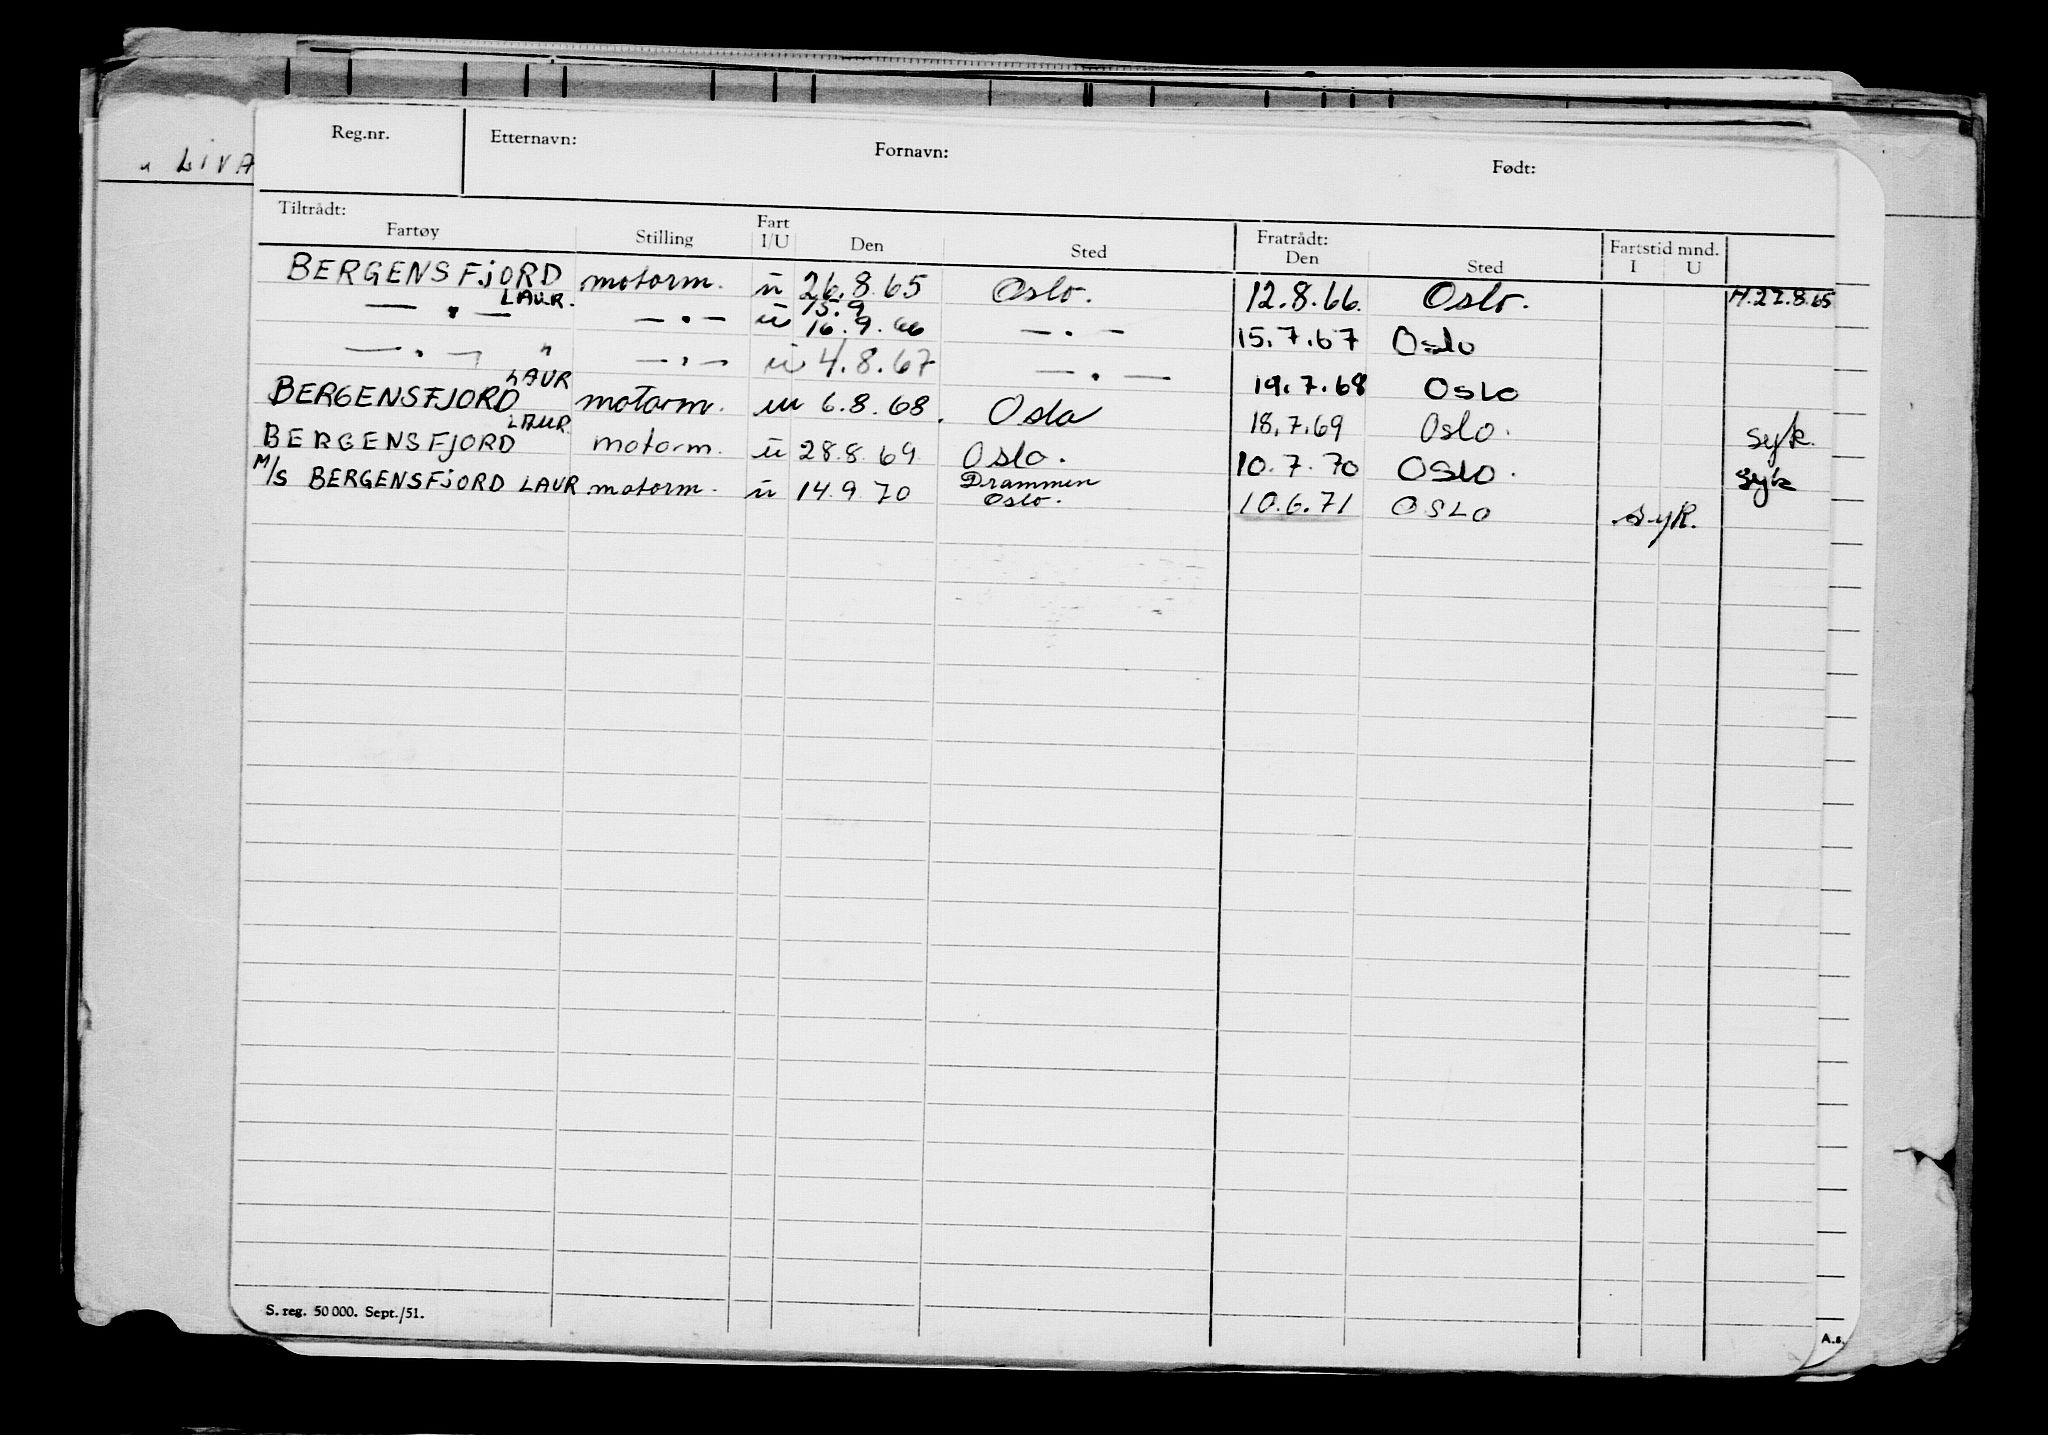 LIVA
Reg.nr. Etternavn: Fornavn: Født:
Tiltrådt: Fratrådt: Fartstid mnd.
Fartøy Stilling Fart I/U Den Sted Den Sted I U
BERGENSFJORD motorm. u 26.8.65 Oslo. 12.8.66. Oslo. H.27.8.65
LAUR.
15.9
— " — — " — u 16.9.66 — " — 15.7.67 Oslo
— " — " — " — u 4.8.67 — " — 19.7.68 OSLO
LAUR
BERGENSFJORD motorm. u 6.8.68. Oslo 18.7.69 Oslo. syk.
LAUR.
BERGENSFJORD motorm. u 28.8.69 Oslo. 10.7.70 OSLO. syk
M/S BERGENSFJORD LAUR motorm. u 14.9.70 Drammen 10.6.71 OSLO syk.
Oslo.
S. reg. 50 000. Sept./51.
A.s.